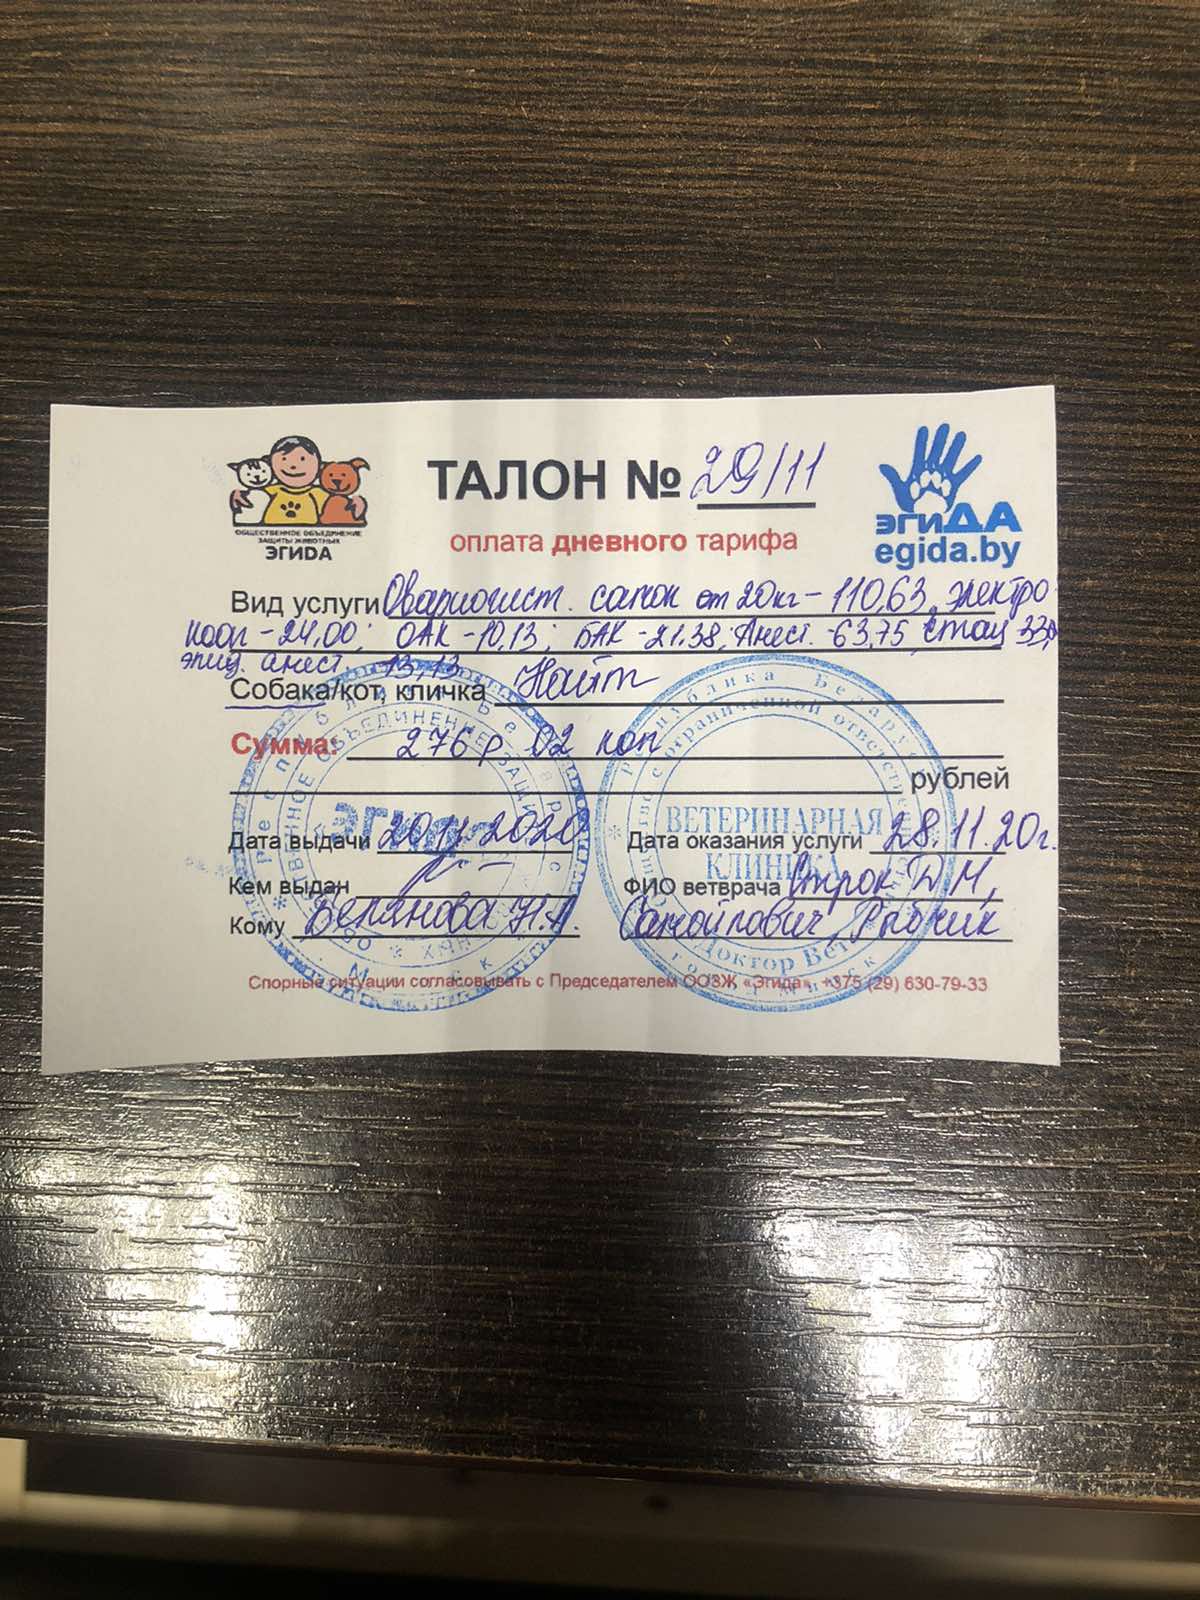 ТАЛОН № 29/11
оплата дневного тарифа
ОБЩЕСТВЕННОЕ ОБЪЕДИНЕНИЕ
ЗАЩИТЫ ЖИВОТНЫХ
ЭГИДА
эгиДА
egida.by
Вид услуги Овариогист. самок от 20кг – 110,63, электро
коаг – 24,00; ОАК – 10,13; БАК – 21.38; Анест. – 63,75 стац 33,0
эпид. анест. 13,13
Собака/кот, кличка Найт
Сумма: 276 р 02 коп
рублей
Дата выдачи 20.11.2020
Дата оказания услуги 28.11.20г.
Кем выдан
ФИО ветврача Строк Д М,
Кому Белянова Н.А.
Самойлович, Рыбчик
Спорные ситуации согласовывать с Председателем ООЗЖ «Эгида», +375 (29) 630-79-33
ЭГИДА
ВЕТЕРИНАРНАЯ
КЛИНИКА
Республика Беларусь
Доктор Вет